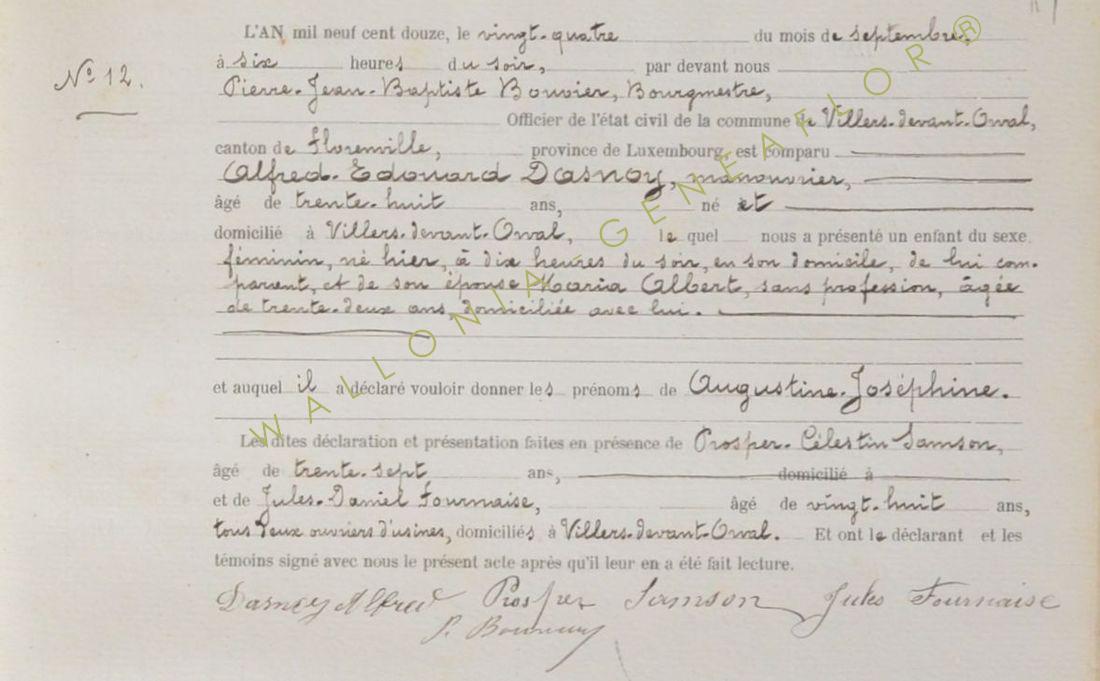 L'AN mil neuf cent douze, le vingt-quatre du mois de septembre,
à six heures du soir, par devant nous
Nº 12.
Pierre-Jean-Baptiste Bouvier, Bourgmestre,
Officier de l'état civil de la commune de Villers-devant-Orval,
canton de Florenville, province de Luxembourg, est comparu
Alfred-Edouard Dasnoy, manouvrier,
âgé de trente-huit ans, né et
domicilié à Villers-devant-Orval, lequel nous a présenté un enfant du sexe
féminin, né hier, à dix heures du soir, en son domicile, de lui com-
parent, et de son épouse Maria Albert, sans profession, âgée
de trente-deux ans, domiciliée avec lui.
et auquel il a déclaré vouloir donner les prénoms de Augustine-Joséphine.
Les dites déclaration et présentation faites en présence de Prosper-Célestin Samson,
âgé de trente-sept ans, domicilié à
et de Jules-Daniel Fournaise, âgé de vingt-huit ans,
tous deux ouvriers d'usines, domiciliés à Villers-devant-Orval. Et ont le déclarant et les
témoins signé avec nous le présent acte après qu'il leur en a été fait lecture.
Dasnoy Alfred Prosper Samson Jules Fournaise
WALLONIA - GENEAFLOR ®